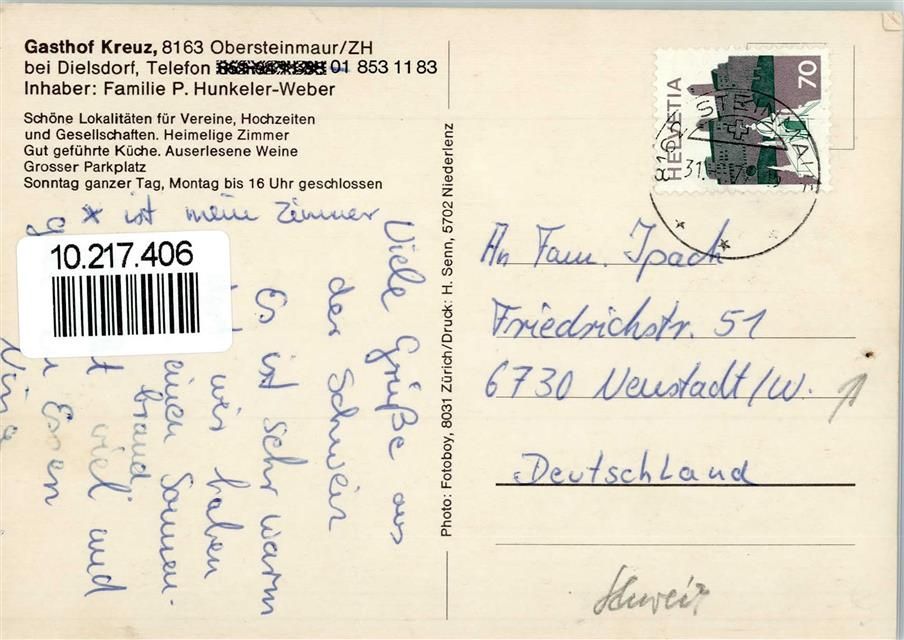 Gasthof Kreuz, 8163 Obersteinmaur/ZH
bei Dielsdorf, Telefon 01 853 11 83
Inhaber: Familie P. Hunkeler-Weber
Schöne Lokalitäten für Vereine, Hochzeiten
und Gesellschaften. Heimelige Zimmer
Gut geführte Küche. Auserlesene Weine
Grosser Parkplatz
Sonntag ganzer Tag, Montag bis 16 Uhr geschlossen
* ist meine Zimmer
10.217.406
Viele Grüße aus
der Schweiz
Es ist sehr warm
wir haben
einen Sonnen-
brand
viel und
Essen
Photo: Fotoboy, 8031 Zürich/Druck: H. Senn, 5702 Niederlenz
HELVETIA
70
31.
An Fam. Ipach
Friedrichstr. 51
6730 Neustadt/W.
Deutschland
Schweiz